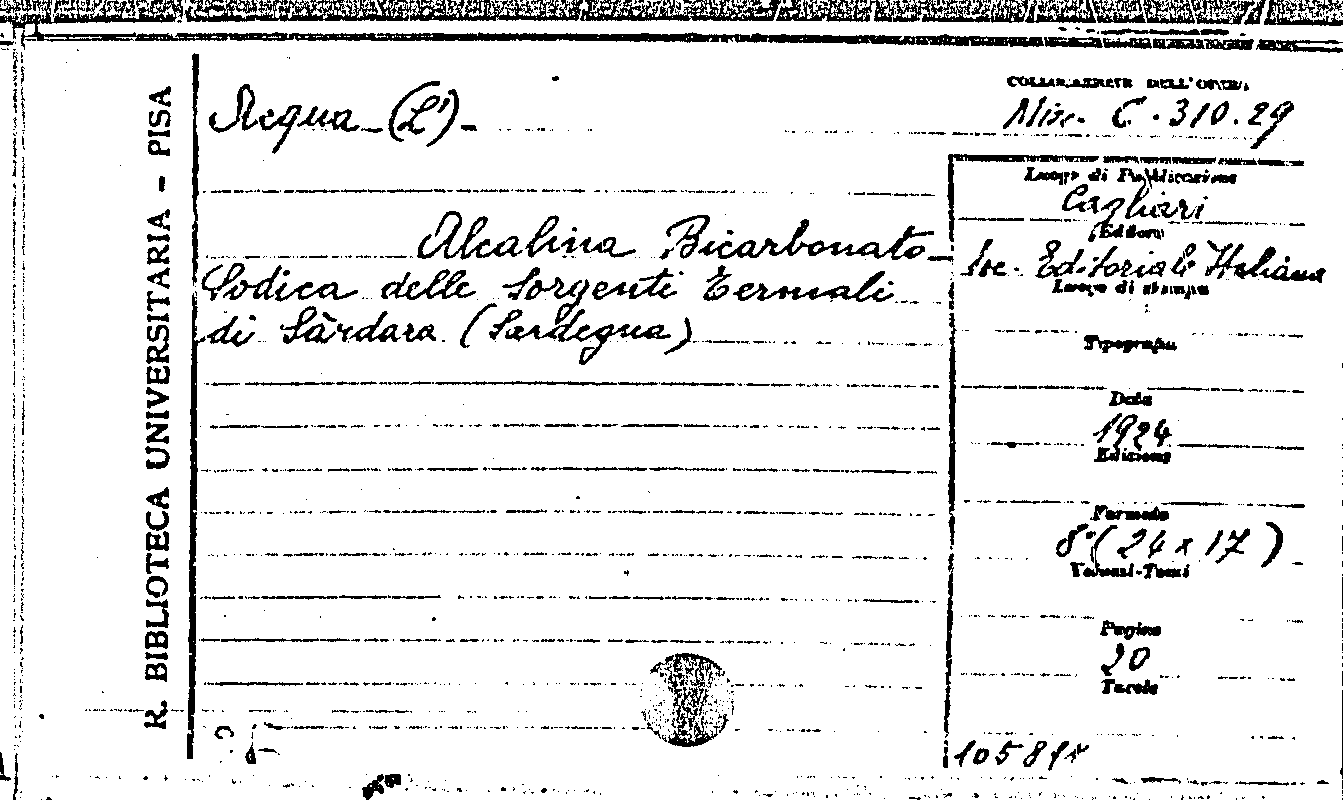 R. BIBLIOTECA UNIVERSITARIA - PISA
COLLOCAZIONE DELL'OPERA
Acqua (L') -
Misc. C. 310.29
Luogo di Pubblicazione
Cagliari
Editore
Alcalina Bicarbonato-
Soc. Editoriale Italiana
Sodica delle Sorgenti Termali
Luogo di stampa
di Sàrdara (Sardegna)
Tipografia
Data
1924
Edizione
Formato
8° (24 x 17)
Volumi-Tomi
Pagine
20
Tavole